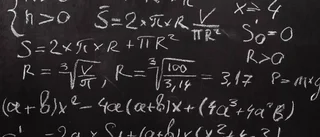 h > 0 S = 2 × π × R V/πR² x = 4
S = 2 × π × R + πR² S'₀ = 0
R > 0
R = ³√(V/π), R = ³√(100/3,14) = 3,17 P = m × g
(a+b)x² - 4a(a+b)x + (4a³ + 4a²b)